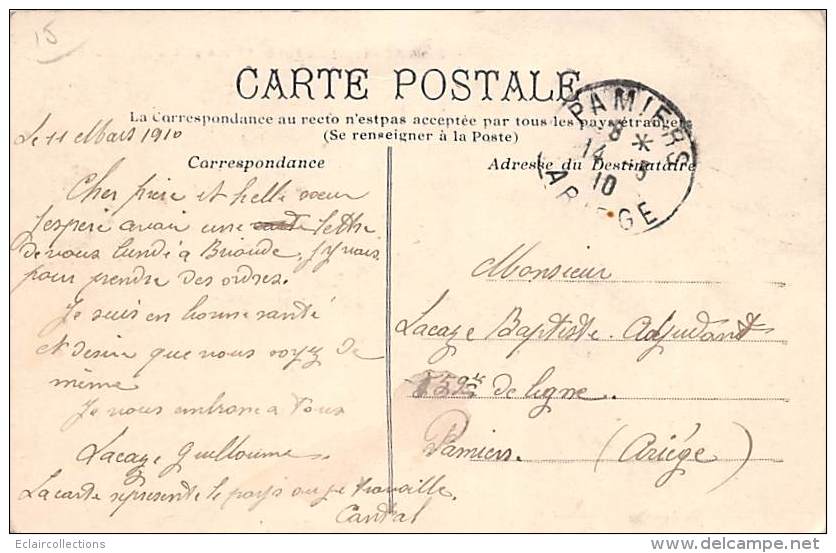 15
CARTE POSTALE
La Correspondance au recto n'est pas acceptée par tous les pays étrangers
(Se renseigner à la Poste)
PAMIERS
8 *
14 -3
10
ARIEGE
Le 11 Mars 1910
Correspondance
Cher frère et belle sœur
J'espère avoir une lettre
de vous lundi à Brioude, J'y vais
pour prendre des ordres.
Je suis en bonne santé
et désire que vous soyez de
même
Je vous embrasse a tous
Lacaze Guillaume
La carte represente le pays ou je travaille
Cantal
Adresse du Destinataire
Monsieur
Lacaze Baptiste. Adjudant
59e de ligne.
Pamiers. (Ariège)
Eclaircollections
©delcampe.net